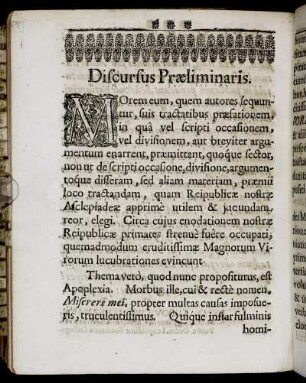 Discursus Præliminaris.
MOrem eum, quem autores sequun-
tur, suis tractatibus præfationem,
in quâ vel scripti occasionem,
vel divisionem, aut breviter argu-
mentum enarrent, præmittant, quoque sector,
non ut de scripti occasione, divisione, argumen-
toque disseram, sed aliam materiam, præmii
loco tractandam, quam Reipublicæ nostræ
Asclepiadeæ apprimè utilem & jucundam
reor, elegi. Circa cujus enodationem nostræ
Reipublicæ primates strenuè fuêre occupati,
quemadmodum eruditissimæ Magnorum Vi-
rorum lucubrationes evincunt.
Thema verò, quod nunc proposituris, est
Apoplexia. Morbus ille, cui & rectè nomen,
Miserere mei, propter multas causas imposue-
ris, truculentissimus. Quique instar fulminis
homi-